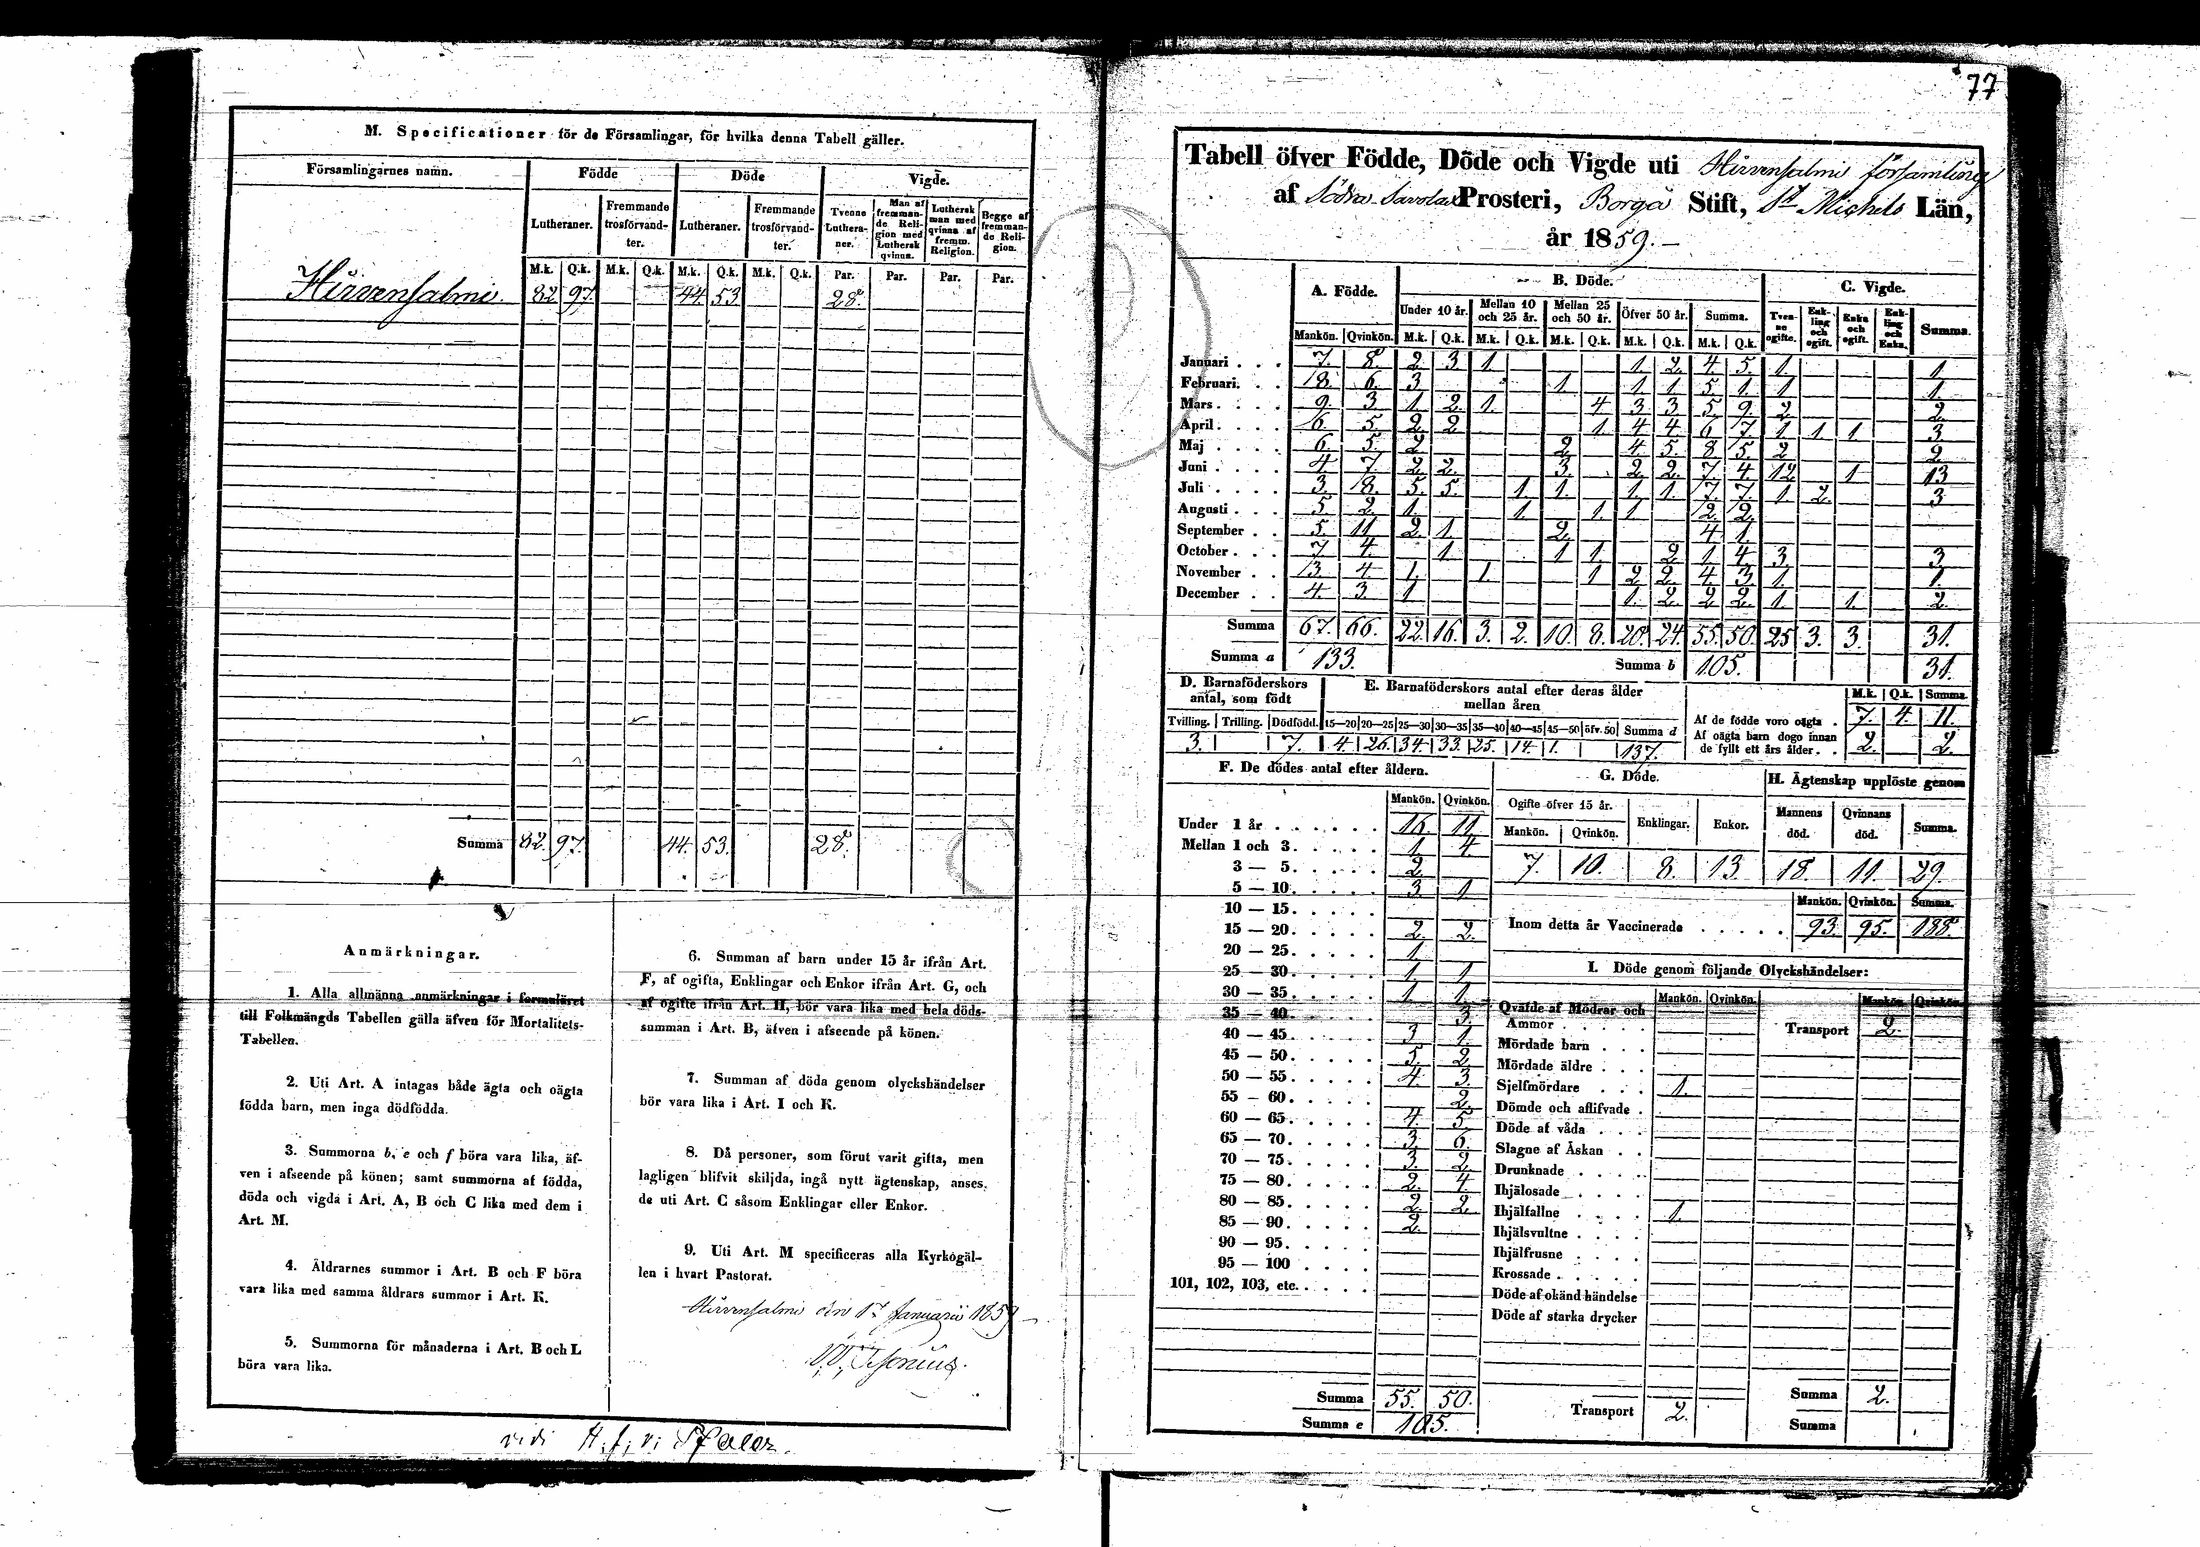 M. Specificationer för de Församlingar, för hvilka denna Tabell gäller.
Församlingarnes namn. Födde Döde Vigde.
Lutheraner. Fremmande trosförvandter. Lutheraner. Fremmande trosförvandter. Tvenne Lutheraner. Man af fremmande Religion med Luthersk qvinna. Luthersk man med qvinna af fremm. Religion. Begge af fremmande Religion.
M.k. Q.k. M.k. Q.k. M.k. Q.k. M.k. Q.k. Par. Par. Par. Par.
Hirvensalmi 82. 97. 44. 53 28.
Summa 82. 97. 44. 53. 28.
Anmärkningar.
1. Alla allmänna anmärkningar i formuläret
till Folkmängds Tabellen gälla äfven för Mortalitets-
Tabellen.
2. Uti Art. A intagas både ägta och oägta
födda barn, men inga dödfödda.
3. Summorna b, e och f böra vara lika, äf-
ven i afseende på könen; samt summorna af födda,
döda och vigda i Art. A, B och C lika med dem i
Art. M.
4. Äldrarnes summor i Art. B och F böra
vara lika med samma åldrars summor i Art. K.
5. Summorna för månaderna i Art. B och L
böra vara lika.
6. Summan af barn under 15 år ifrån Art.
F, af ogifta, Enklingar och Enkor ifrån Art. G, och
af ogifte ifrån Art. H, bör vara lika med hela döds-
summan i Art. B, äfven i afseende på könen.
7. Summan af döda genom olyckshändelser
bör vara lika i Art. I och K.
8. Då personer, som förut varit gifta, men
lagligen blifvit skiljda, ingå nytt ägtenskap, anses
de uti Art. C såsom Enklingar eller Enkor.
9. Uti Art. M specificeras alla Kyrkogäl-
len i hvart Pastorat.
Hirvensalmi den 17 Januarii 1859
vidi
77
Tabell öfver Födde, Döde och Vigde uti Hirvensalmi församling
af Södra Savolax Prosteri, Borgå Stift, St Michels Län,
år 1859.
A. Födde. B. Döde. C. Vigde.
Under 10 år. Mellan 10 och 25 år. Mellan 25 och 50 år. Öfver 50 år. Summa. Tvenne ogifte. Enkling och ogift. Enka och ogift. Enkling och Enka. Summa.
Mankön. Qvinkön. M.k. Q.k. M.k. Q.k. M.k. Q.k. M.k. Q.k. M.k. Q.k.
Januari 7. 8. 2. 3. 1. 1. 2. 4. 5. 1. 1.
Februari. 8. 6. 3 1. 1 1 5. 1. 1 1.
Mars 9. 3 1. 2. 1. 4 3 3 5. 9. 2 2.
April 6. 5. 2. 2 1. 4 4 6 7 1 1 1. 3
Maj 6. 5. 2 2. 4. 5. 8 5. 2 2.
Juni 4 7. 2. 2. 3. 2. 2. 7 4. 12. 1 13
Juli 3. 8. 5. 5. 1. 1. 1. 1. 7. 7. 1 2. 3
Augusti 5 2. 1. 1. 1. 1 2. 2.
September 5. 11. 2. 1. 2. 4 1.
October 7. 4. 1 1 1. 2 1 4. 3. 3.
November 13. 4. 1. 1. 1 2 2. 4. 3. 1. 1.
December 4. 3. 1 1. 2. 2 2. 1. 1. 2.
Summa 67. 66. 22. 16. 3. 2. 10. 8. 20. 24. 55. 50. 25 3. 3. 31.
Summa a 133. Summa b 105. 31.
D. Barnaföderskors antal, som födt
Tvilling. Trilling. Dödfödd.
3. 7.
E. Barnaföderskors antal efter deras ålder mellan åren
15—20 20—25 25—30 30—35 35—40 40—45 45—50 öfv. 50 Summa d
4. 26. 34. 33. 25. 14. 1. 137.
M.k. Q.k. Summa
Af de födde voro oägta 7. 4. 11.
Af oägta barn dogo innan
de fyllt ett års ålder. 2. 2.
F. De dödes antal efter åldern.
Mankön. Qvinkön.
Under 1 år 16. 11
Mellan 1 och 3. 1. 4
3 — 5. 2.
5 — 10. 3 1
10 — 15.
15 — 20. 2. 2.
20 — 25. 1.
25 — 30. 1 1
30 — 35. 1 1.
35 — 40. 3.
40 — 45. 3 1.
45 — 50. 5. 2
50 — 55. 4. 3.
55 — 60. 2.
60 — 65. 4. 5.
65 — 70. 3. 6.
70 — 75. 3. 2.
75 — 80. 2. 4.
80 — 85. 2. 2.
85 — 90. 2.
90 — 95.
95 — 100
101, 102, 103, etc.
Summa 55. 50.
Summa e 105.
G. Döde.
Ogifte öfver 15 år. Enklingar. Enkor.
Mankön. Qvinkön.
7. 10. 8. 13.
H. Ägtenskap upplöste genom
Mannens död. Qvinnans död. Summa.
18. 11. 29.
Mankön. Qvinkön. Summa.
Inom detta år Vaccinerade 93. 95. 188.
I. Döde genom följande Olyckshändelser:
Mankön. Qvinkön. Mankön. Qvinkön.
Qväfde af Mödrar och
Ammor
Transport 2.
Mördade barn
Mördade äldre
Sjelfmördare 1.
Dömde och aflifvade
Döde af våda
Slagne af Åskan
Drunknade
Ihjälosade
Ihjälfallne 1.
Ihjälsvultne
Ihjälfrusne
Krossade
Döde af okänd händelse
Döde af starka drycker
Transport 2.
Summa 2.
Summa